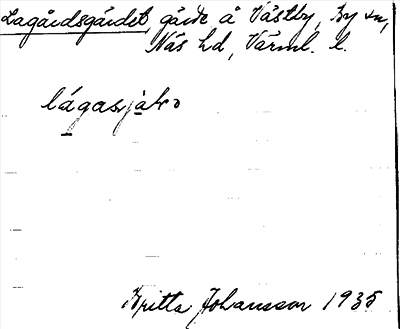 Lagårdsgärdet, gärde å Västby, By sn,
Näs hd, Värml. l.
Britta Johansson 1935